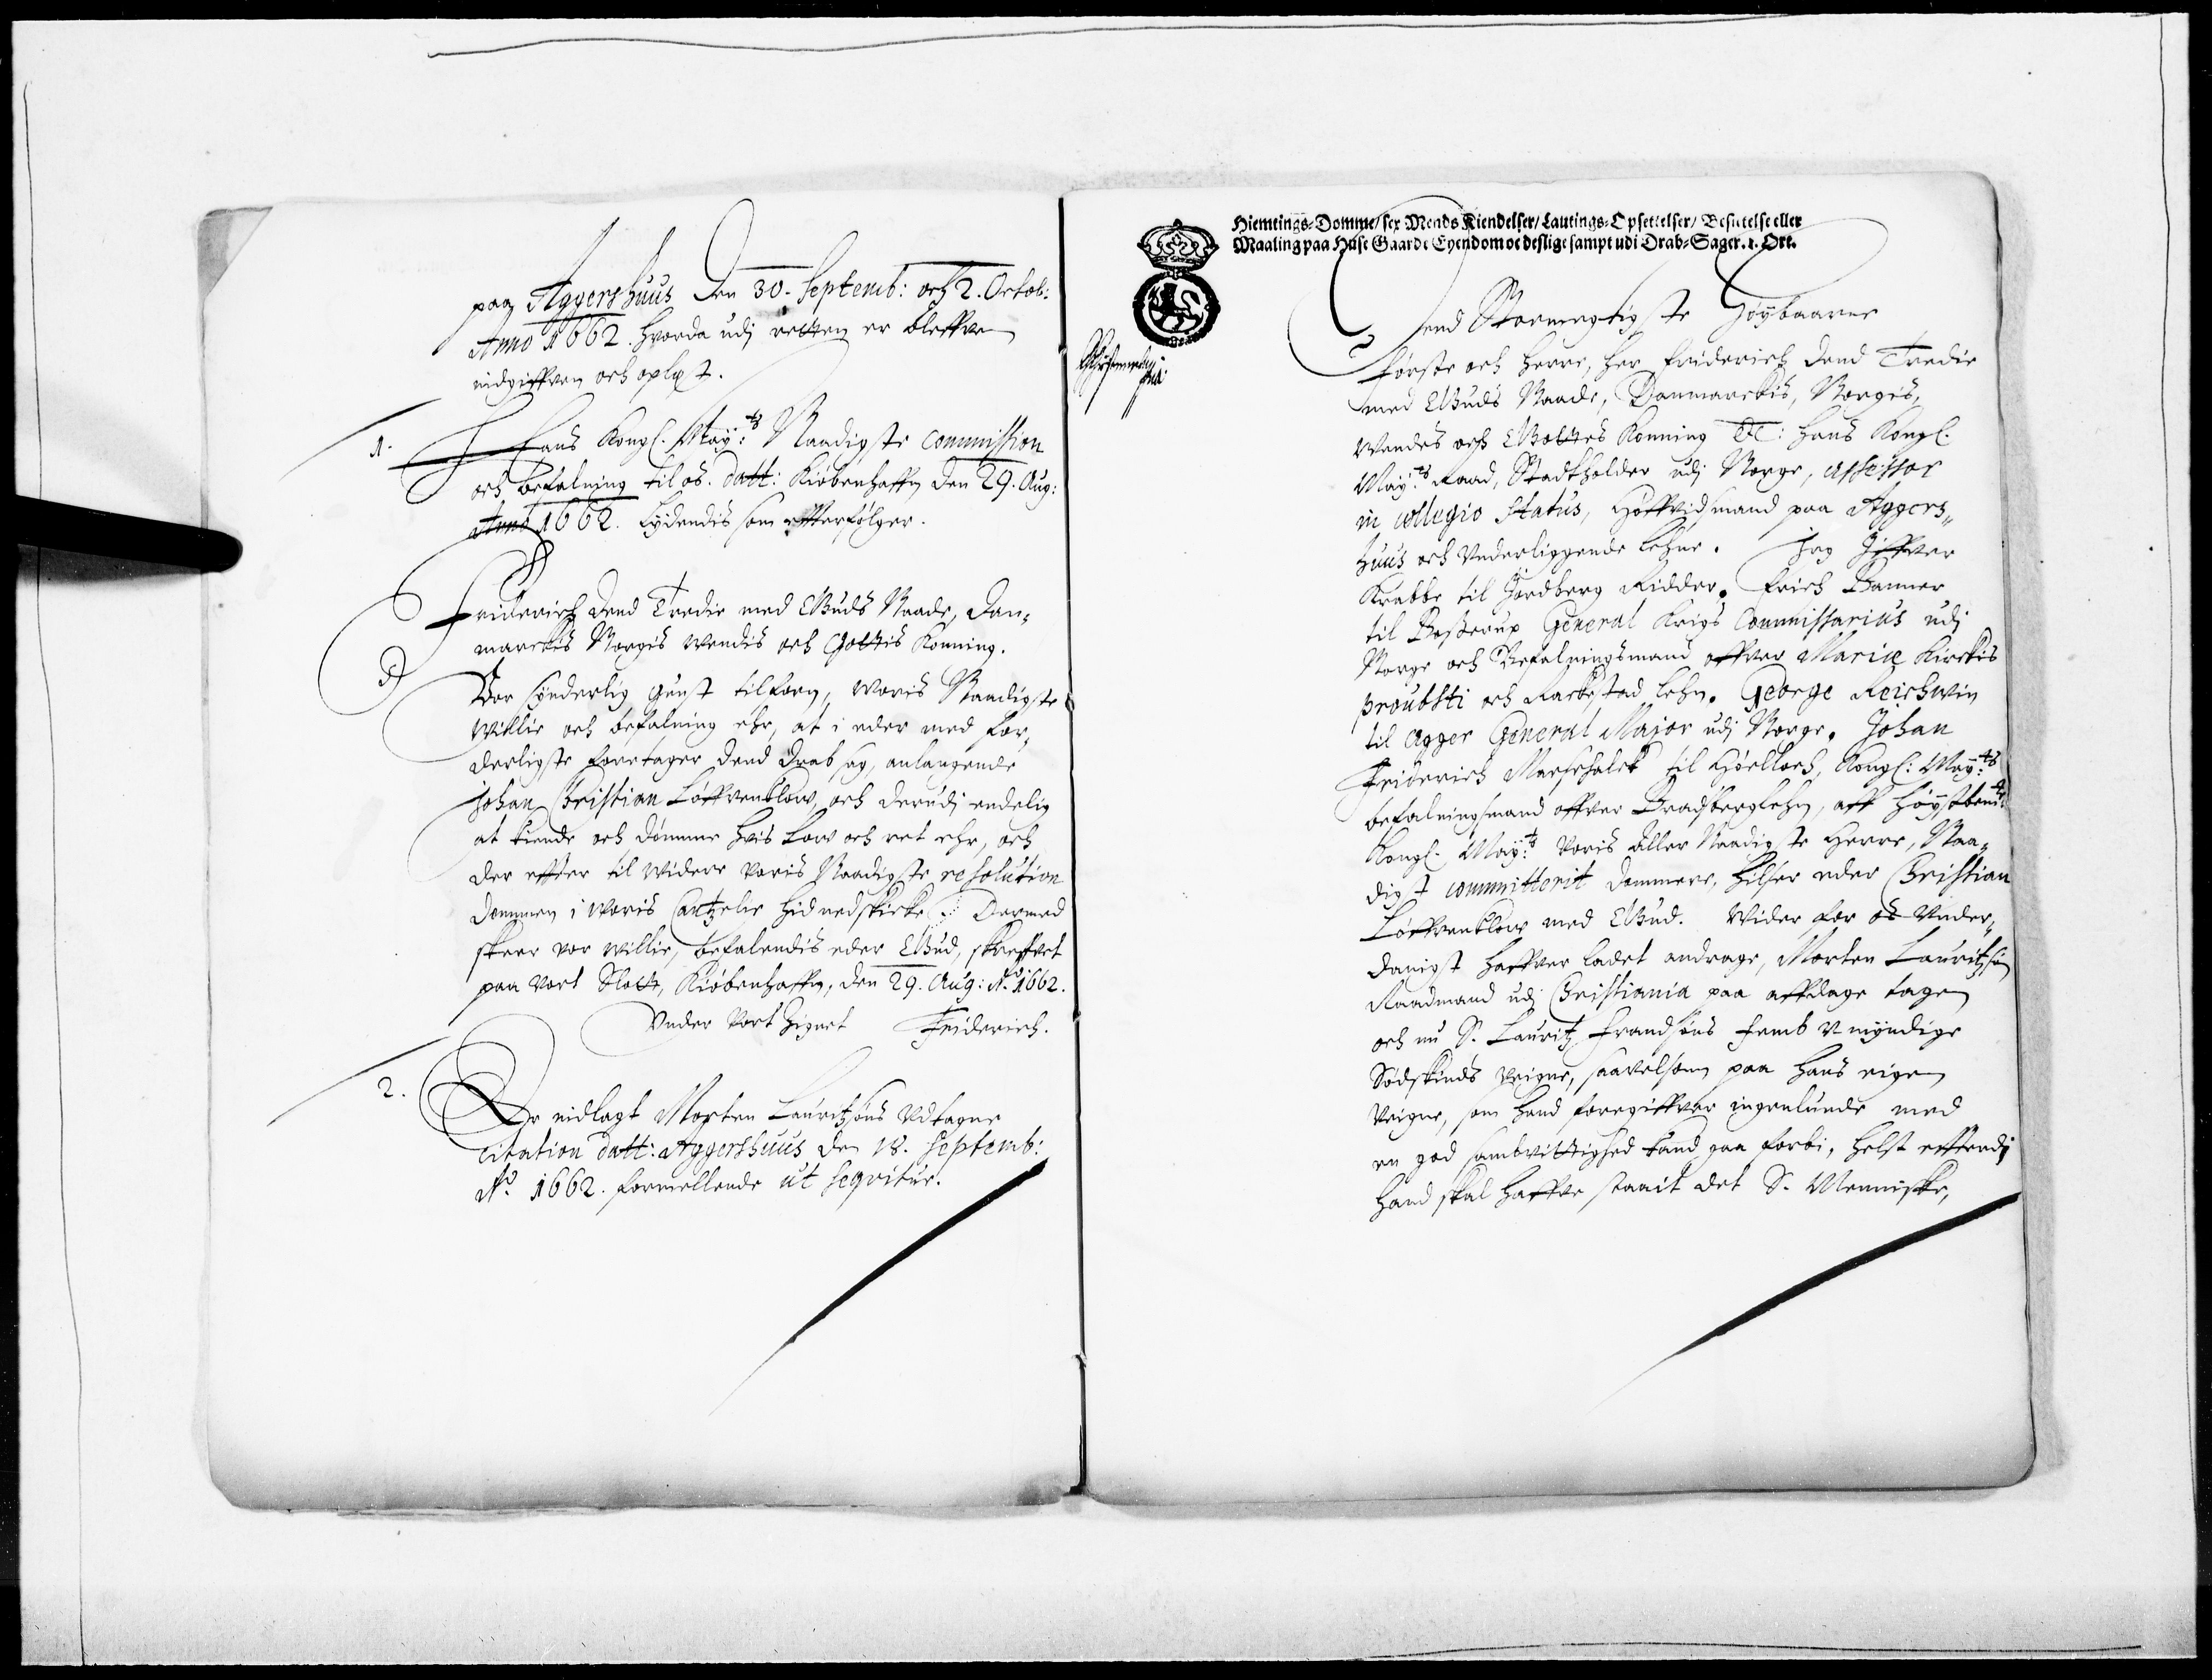 paa Aggershuus den 30. Septemb: och 2. Octob:
Anno 1662. hvorda udj retten er bleffven
indgiffven och oplæst.
1. Hans Kongl. May:ts Naadigste Commission
och befalning til os. datt: Kiøbenhaffn den 29. Aug:
Anno 1662. Lydendis som effterfølger.
Friderich dend Tredie med Guds Naade, Dan-
marckis Norgis Wendis och Gottis Konning.
Vor synderlig gunst tilforn, Woris Naadigste
Willie och befalning ehr, at i eder med for-
derligste foretager dend Drab sag, anlangende
Johan Christian Løffvenklow, och derudj endelig
at kiende och dømme hvis Low och ret ehr, och
der effter til Widere Woris Naadigste resolution
Dommen i Woris Cantzelie hid nedskicke. Dermed
skeer vor Willie, befalendis eder Gud, skreffvet
paa Vort Slott, Kiøbenhaffn, den 29. Aug: Ao. 1662.
Under Vort Zignet Friderich.
2. Er indlagt Morten Lauritzøns Udtagne
Citation datt: Aggershuus den 18. Septemb:
Ao. 1662. formellende ut seqvitur.
Hiemtings-Domme/ sex Mends Kiendelser/ Lautings-Opsettelser/ Besictelse eller
Maaling paa Huse Gaarde Eyendom oc deslige sampt udi Drab-Sager. 1. Ort.
Dend Stormegtigste Høybaarne
Første och Herre, Her Friderich dend Tredie
med Guds Naade, Danmarckis, Norgis,
Wendes och Gottes Konning &c: Hans Kongl.
May:ts Raad, Stadtholder udj Norge, Assessor
in Collegio Status, Høffvidsmand paa Aggers-
huus och Underliggende Lehne. Jeg Iffver
Krabbe til Jordberg Ridder. Erich Banner
til General Krigs Commissarius udj
Norge och Befalningsmand offver Mariæ Kirckis
proubsti och Lehn. George Reichwin
til Agger General Major udj Norge. Johan
Friderich Marschalck til Kongl: May:ts
befalningsmand offver Bradsberg Lehn, aff høystbem:te
Kongl. May:ts Voris aller Naadigste Herre, Naa-
digst committerit Dommere, Hilser eder Christian
Løffvenklow med Gud. Wider for os Under-
danigst haffver ladet andrage, Morten Lauritzøn
Raadmand udj Christiania paa affdage tagen
och nu S. Lauritz Frandsøns femb U-myndige
Sødskinds Veigne, saavelsom paa hans eigen
Veigne, som hand foregiffver ingenlunde med
en god sambvittighed kand gaa forbi, helst efftterdj
hand skal haffve staait det S. Menniske,